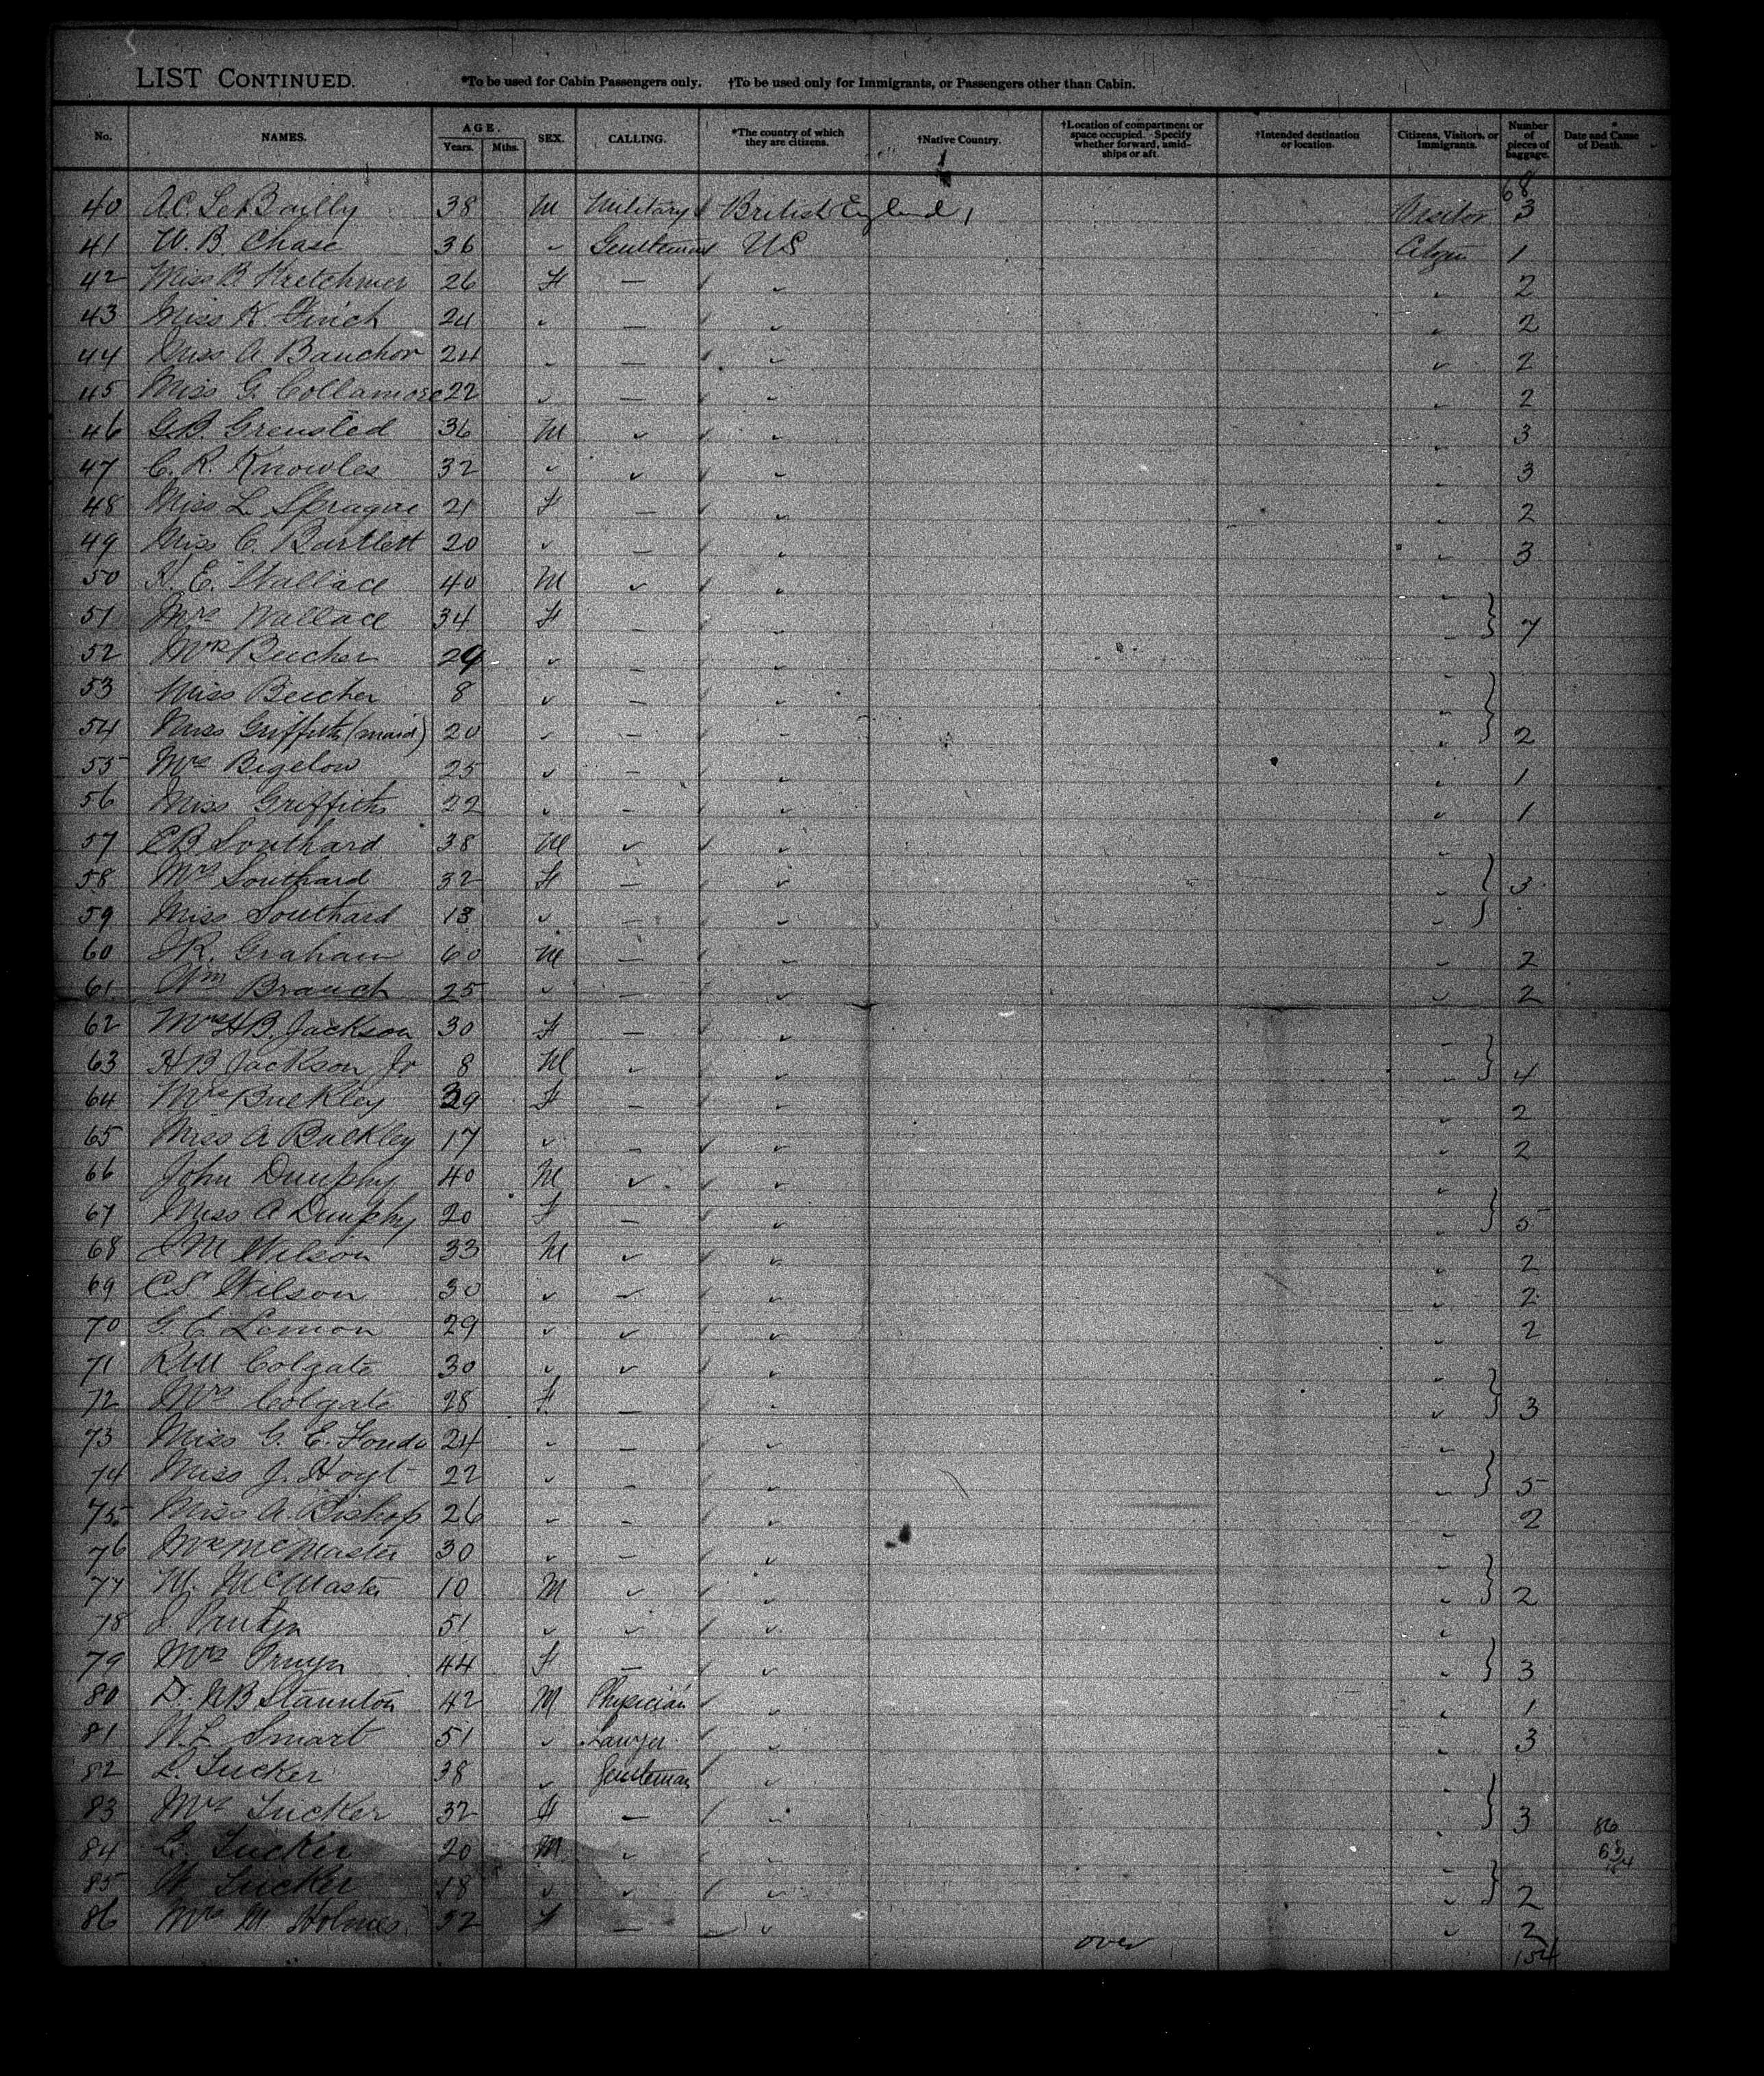 LIST CONTINUED. *To be used for Cabin Passengers only. †To be used only for Immigrants, or Passengers other than Cabin.
No. NAMES. AGE. Years. Mths. SEX. CALLING. *The country of which they are citizens. †Native Country. †Location of compartment or space occupied. Specify whether forward, amidships or aft. †Intended destination or location. Citizens, Visitors, or Immigrants. Number of pieces of baggage. Date and Cause of Death.
68
40 A.C. Le Bailly 38 M Military British England 1 Visitor 3
41 W. B. Chase 36 " Gentleman US Citizen 1
42 Miss B Kretchmer 26 F — " " 2
43 Miss K. Finch 24 " — " " 2
44 Miss A Bauchor 24 " — " " 2
45 Miss G Collamore 22 " — " " 2
46 G.B. Grensted 36 M " " " 3
47 C. R. Knowles 32 " " " " 3
48 Miss L Sprague 21 F — " " 2
49 Miss C. Bartlett 20 " — " " 3
50 H. E. Wallace 40 M " " "
51 Mrs Wallace 34 F — " " } 7
52 Mrs Beecher 29 " — " "
53 Miss Beecher 8 " — " "
54 Miss Griffith (maid) 20 " — " " } 2
55 Mrs Bigelow 25 " — " " 1
56 Miss Griffiths 22 " — " " 1
57 E B Southard 38 M " " "
58 Mrs Southard 32 F — " " } 3
59 Miss Southard 13 " — " " }
60 R. Graham 60 M — " " 2
61 Wm Branch 25 " — " " 2
62 Mrs H B. Jackson 30 F — " "
63 H B Jackson Jr 8 M " " " } 4
64 Mrs Bulkley 39 F — " " 2
65 Miss A Bulkley 17 " — " " 2
66 John Dunphy 40 M " " "
67 Miss A Dunphy 20 F — " " } 5
68 J M Wilson 33 M " " " 2
69 C S. Wilson 30 " " " " 2
70 G. E Lemon 29 " " " " 2
71 R M Colgate 30 " " " "
72 Mrs Colgate 28 F — " " } 3
73 Miss G. E. Fonda 24 " — " "
74 Miss J. Hoyt 22 " — " " } 5
75 Miss A. Bishop 26 " — " " 2
76 Mrs McMaster 30 " — " "
77 M. McMaster 10 M " " " } 2
78 J Pruyn 51 " " " "
79 Mrs Pruyn 44 F — " " } 3
80 Dr. N B Staunton 42 M Physician " " 1
81 W. L Smart 51 " Lawyer " " 3
82 L. Tucker 38 " Gentleman " "
83 Mrs Tucker 32 F — " " } 3
84 L. Tucker 20 M " " "
85 W Tucker 18 " " " " } 2
86 Mrs M. Holmes 52 F — " " 2
86
68
154
over
154